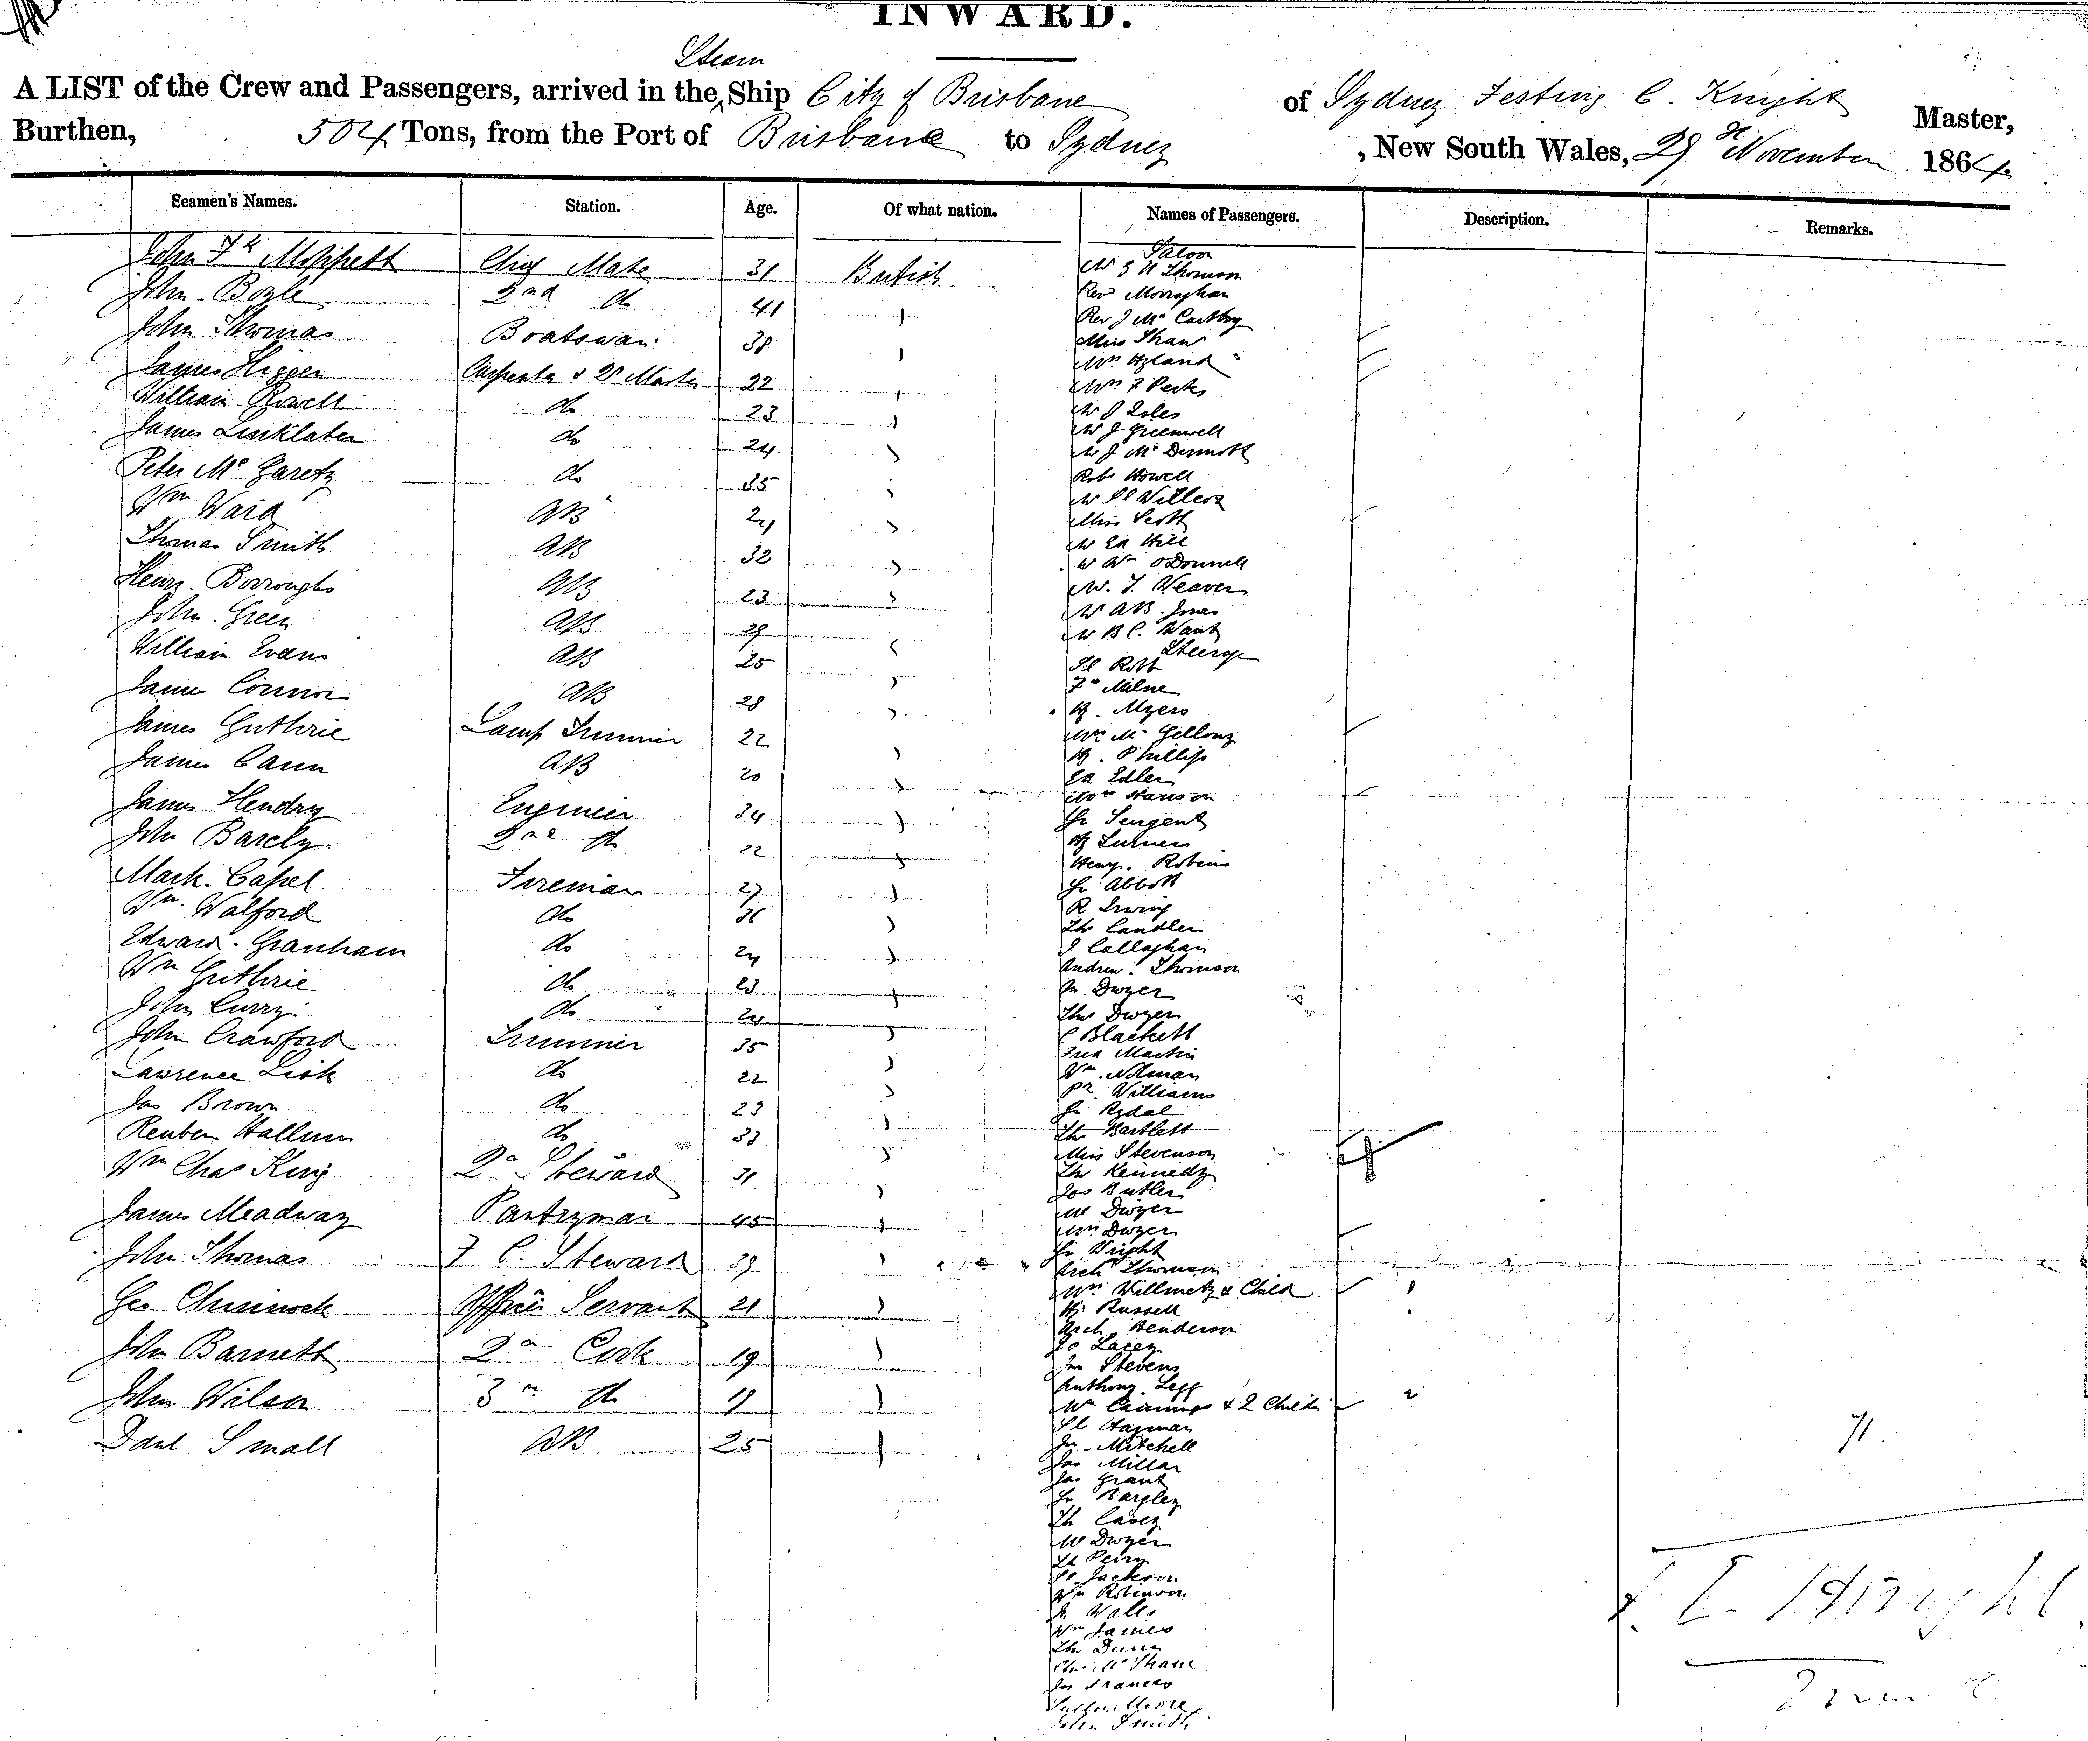 INWARD.
Steam
A LIST of the Crew and Passengers, arrived in the Ship City of Brisbane of Sydney Festing C. Knight Master,
Burthen, 504 Tons, from the Port of Brisbane to Sydney, New South Wales, 29th November 1864.
Seamen's Names. Station. Age. Of what nation. Names of Passengers. Description. Remarks.
Saloon
John Fk Moppett Chief Mate 31 British
John Boyle 2nd do 41
John Thomas Boatswain 38
James Carpenter & Qr Master 22
William do 23
James Linklater do 24
Peter Mc Garety do 35
Wm Ward AB 24
Thomas Smith AB 32
Henry Borroughs AB 23
John Green AB 29
William Evans AB 25
James Connor AB 28
James Guthrie Lamp Trimmer 22
James Cann AB 20
James Hendry Engineer 34
John Barely 2nd do 22
Mark Capel Fireman 27
Wm Walford do 31
Edward Granham do 24
Wm Guthrie do 23
John Curry do 24
John Crawford Trimmer 35
Lawrence Lisk do 22
Jas Brown do 23
Reuben Hallum do 33
Wm Chas King 2d Steward 31
James Meadway Pantryman 45
John Thomas F C. Steward 29
Geo Officers Servant 21
John Barnett 2d Cook 19
John Wilson 3rd do 19
Danl Small AB 25
Mr Thomson
Revd Monaghan
Rev J Mc Carthy
Miss Shaw
Mrs Hyland
Mrs F Perks
Mr J Coles
Mr J Greenwell
Mr J Mc Dermott
Robt Howell
Mr Villiers
Miss Scott
Mr Ed Hill
Mr Wm O'Donnell
Mr. T. Weaver
Mr AB Jones
Mr B C. Want
Steerage
Rott
Milne
Hy. Myers
Mrs Mc Gellong
Hy. Phillips
Ed Edler
Mrs Hanson
Jn Sergent
Hy Turner
Henry. Robins
Jn Abbott
R Irwing
Ths Candler
J Callaghan
Andrew. Thomson
Jn Dwyer
Thos Dwyer
C Blackett
Fred Martin
Wm. Nolman
Williams
Jn Rydal
Ths Bartlett
Miss Stevenson
Ths Kennedy
Jos Butler
M Dwyer
Mrs Dwyer
Jn Wright
Archd Thomson
Mrs Willmetz & Child
Hy Russell
Arch Henderson
Lacey
Jno Stevens
Anthony. Legg
Mrs & 2 Childn
Hagman
Jn Mitchell
Jas Millar
Jas Grant
Jn Bayley
Th Casey
M Dwyer
Perry
Jackson
Wm Robinson
Jn Walls
Wm James
Ths Dunn
Mc Shane
Jos Frances
Moore
John Smith
71.
F. C. Knight